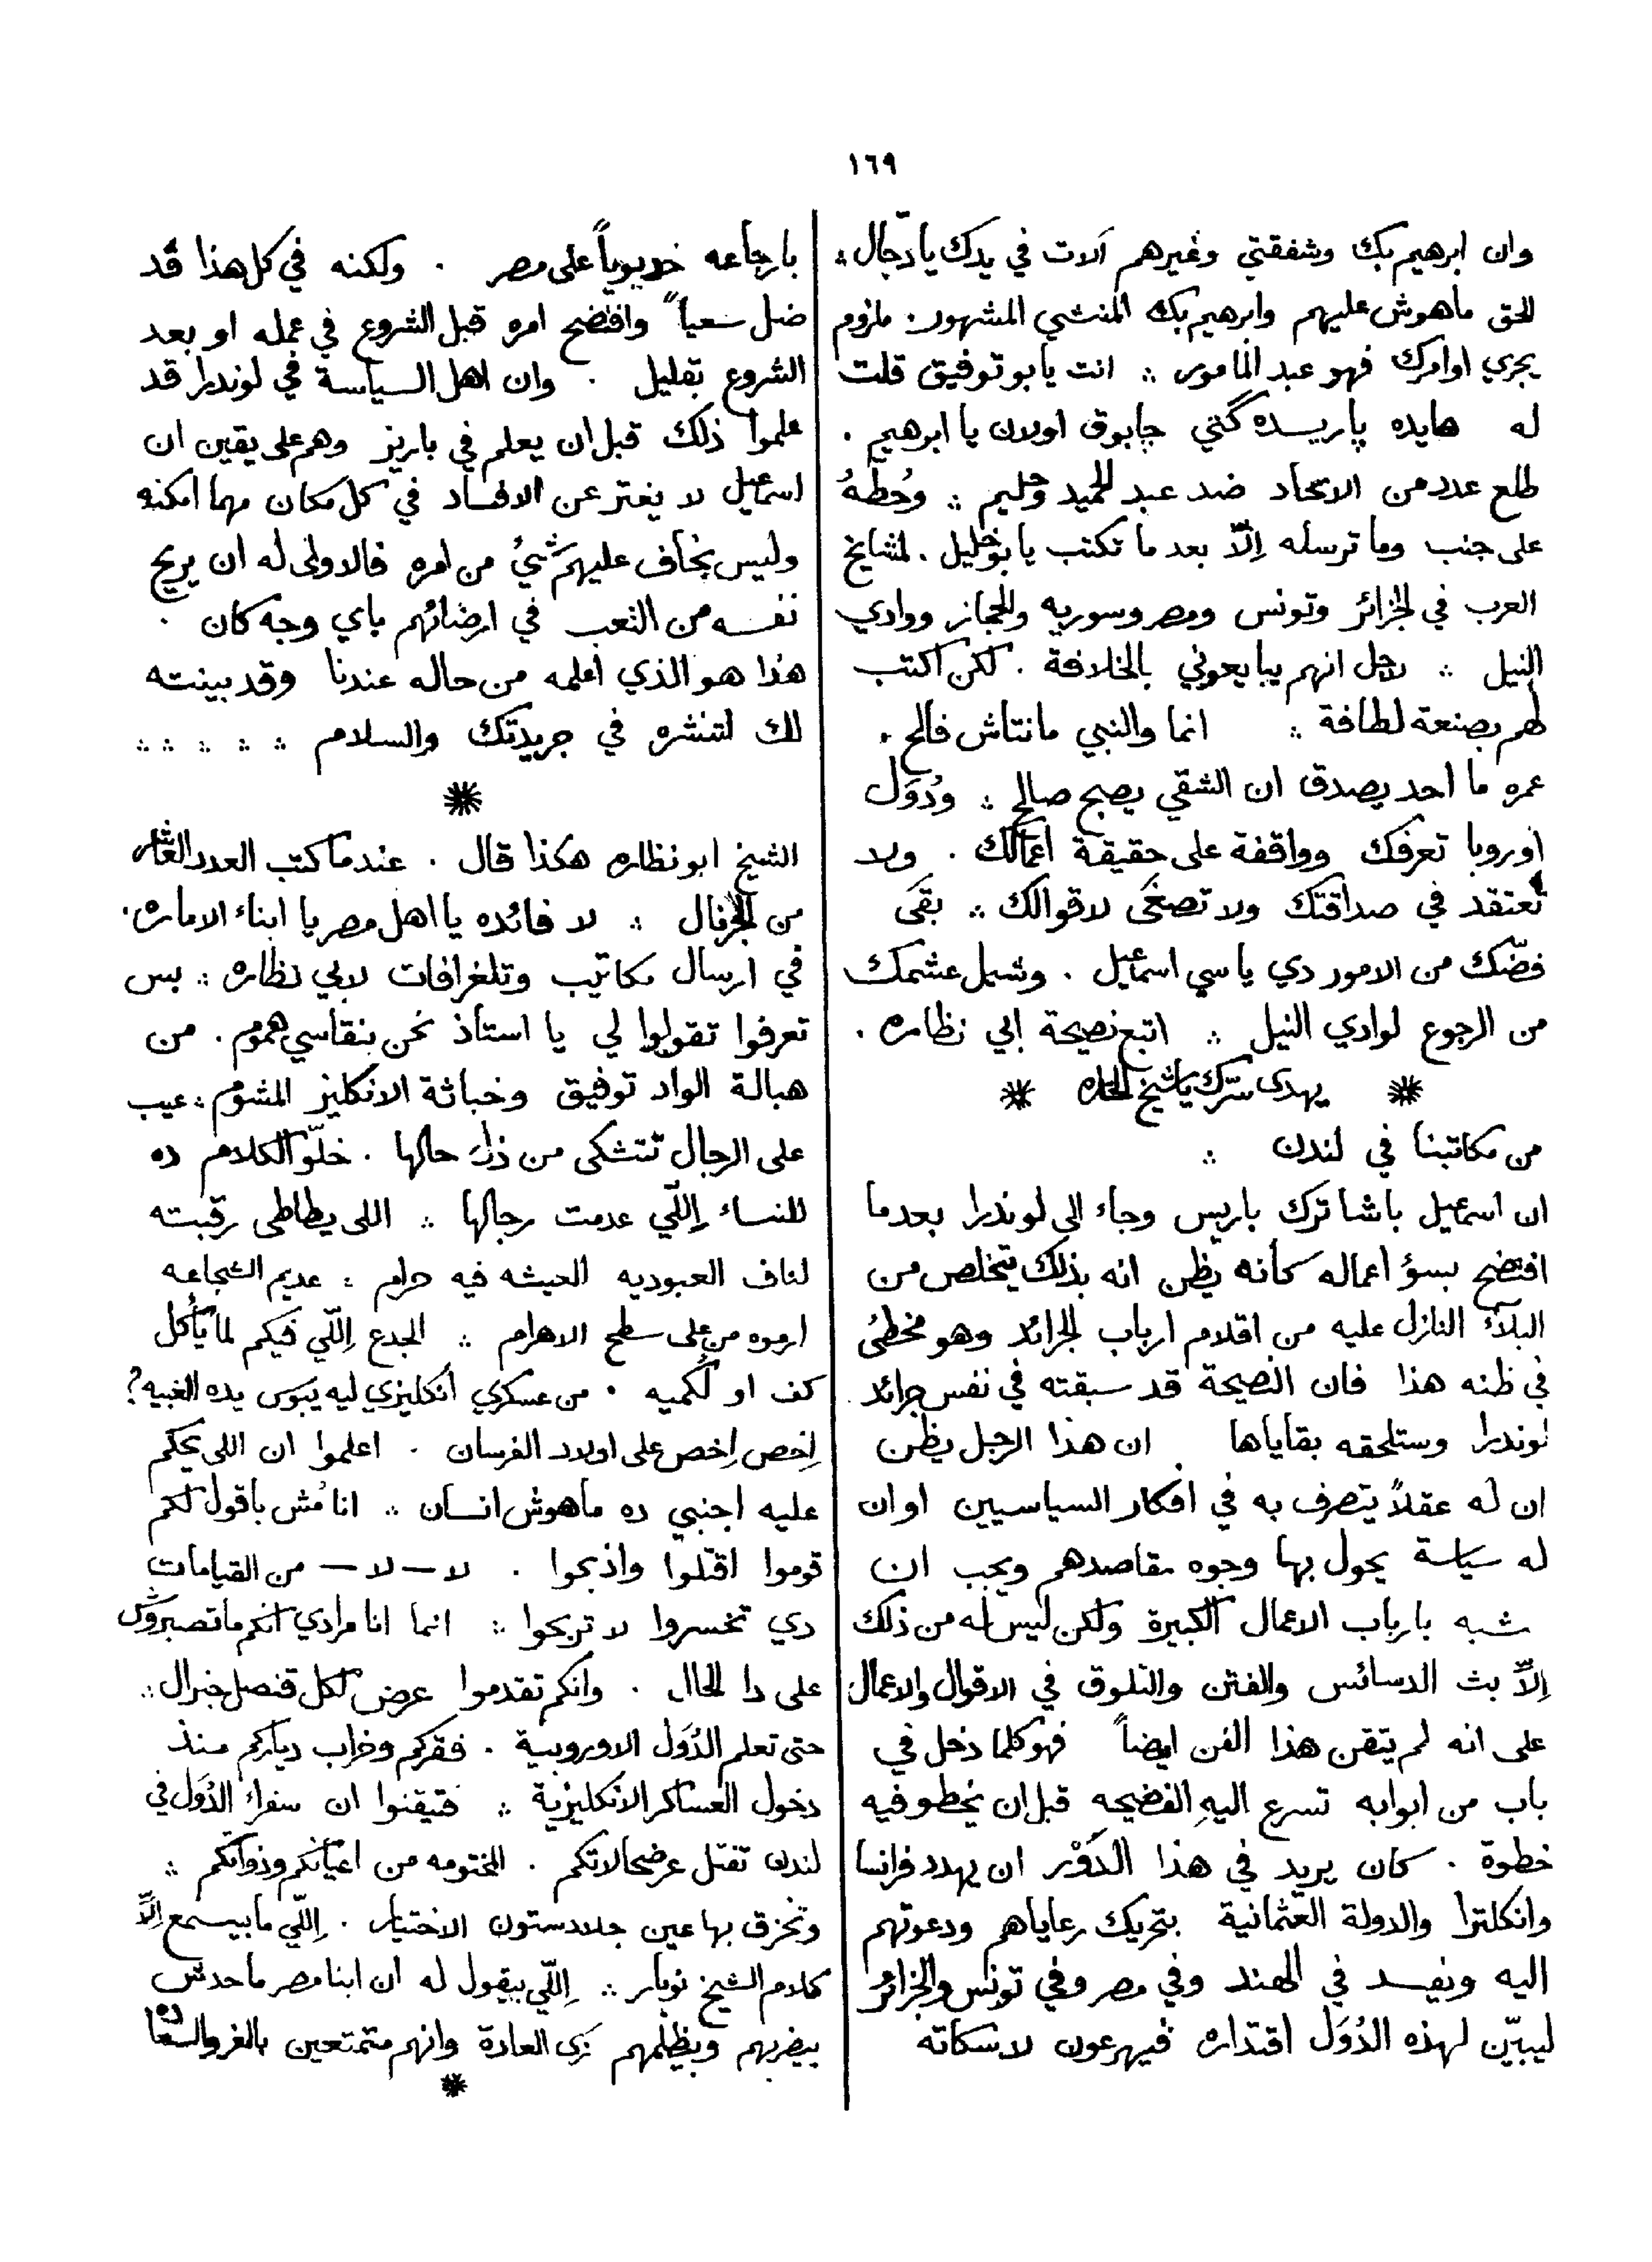 ١٦٩
وان ابرهيم بك وشفقتي وغيرهم آلات في يدك يا دجّال ⁘
الحق ماهوش عليهم وابرهيم بك المنشي المشهور. ملزوم
يجري اوامرك فهو عبد المامور ⁘ انت يابو توفيق قلت
له هايده پاريسده گتي چابوق اولان يا ابرهيم .
طلع عدد من الاتحاد ضد عبد الحميد وحليم ⁘ وحُطهُ
على جنب وما ترسله اِلاّ بعد ما تكتب يا بو خليل . لمشايخ
العرب في الجزائر وتونس ومصر وسوريه والحجاز ووادي
النيل ⁘ لاجل انهم يبايعوني بالخلافة . لكن اكتب
لهم بصنعة لطافة ⁘ انما والنبي مانتاش فالح .
عمره ما احد يصدق ان الشقي يصبح صالح ⁘ ودُوَل
اوروبا تعرفك وواقفة على حقيقة اعمالك . ولا
تعتقد في صداقتك ولا تصغى لاقوالك ⁘ بقى
فضّك من الامور دي يا سي اسماعيل . وشيل عشمك
من الرجوع لوادي النيل ⁘ اتبع نصيحة ابي نظاره .
يهدى سرّك يا شيخ الحاره
من مكاتبنا في لندن ⁘
ان اسمعيل باشا ترك باريس وجاء الى لوندرا بعدما
افتضح بسؤ اعماله كأنه يظن انه بذلك يتخلص من
البلاء النازل عليه من اقلام ارباب الجرائد وهو مخطئ
في ظنه هذا فان النصيحة قد سبقته في نفس جرائد
لوندرا وستلحقه بقاياها ان هذا الرجل يظن
ان له عقلاً يتصرف به في افكار السياسيين او ان
له سياسة يحول بها وجوه مقاصدهم ويجب ان
شبه بارباب الاعمال الكبيرة ولكن ليس له من ذلك
اِلاّ بث الدسائس والفتن والتلوق في الاقوال والاعمال
على انه لم يتقن هذا الفن ايضاً فهو كلما دخل في
باب من ابوابه تسرع اليهِ الفضيحه قبل ان يخطو فيه
خطوة . كان يريد في هذا الدَوْر ان يهدد فرانسا
وانكلترا والدولة العثمانية بتحريك رعاياهم ودعوتهم
اليه ويفسد في الهند وفي مصر وفي تونس والجزائر
ليبيّن لهذه الدُوَل اقتداره فيهرعون لاسكاته
بارجاعه خديوياً على مصر . ولكنه في كل هذا قد
ضل سعياً وافتضح امره قبل الشروع في عمله او بعد
الشروع بقليل . وان اهل السياسة في لوندرا قد
علموا ذلك قبل ان يعلم في باريز وهم على يقين ان
اسماعيل لا يفتر عن الافساد في كل مكان مهما امكنه
وليس يخاف عليهم شئ من امره فالاولى له ان يريح
نفسه من التعب في ارضائهم باي وجه كان .
هذا هو الذي اعلمه من حاله عندنا وقد بينته
لك لتنشره في جريدتك والسلام ⁘ ⁘ ⁘ ⁘ ⁘
الشيخ ابو نظاره هكذا قال . عندما كتب العدد العاشر
من الجرنال ⁘ لا فائده يا اهل مصر يا ابناء الاماره .
في ارسال مكاتيب وتلغرافات لابي نظاره ⁘ بس
تعرفوا تقولوا لي يا استاذ نحن بنقاسي هموم . من
هبالة الواد توفيق وخباثة الانكليز المشوم ⁘ عيب
على الرجال تتشكى من ذل حالها . خلّو الكلام ده
للنساء اِللّي عدمت رجالها ⁘ اللى يطاطى رقبته
لناف العبوديه العيشه فيه حرام ⁘ عديم الشجاعه
ارموه من على سطح الاهرام ⁘ الجدع اِللّي فيكم لما يأكل
كف او لُكميه . من عسكري انكليزي ليه يبوس يده الغبيه ؟
اِخص اِخص على اولاد الفرسان . اعلموا ان اللى يحكم
عليه اجنبي ده ماهوش انسان ⁘ انا مُش باقول لكم
قوموا اقتلوا واذبحوا . لا — لا — من القيامات
دي تخسروا لا تربحوا ⁘ انما انا مرادي انكم ما تصبروش
على دا الحال . وانكم تقدموا عرض لكل قنصل جنرال ⁘
حتى تعلم الدُوَل الاوروبية . فقركم وخراب دياركم منذ
دخول العساكر الانكليزية ⁘ فتيقنوا ان سفراء الدُوَل في
لندن تقبل عرضحالاتكم . المختومه من اعيانكم وذواتكم ⁘
وتخزق بها عين جلادستون الاختيار . اِللّي ما بيسمع اِلاّ
كلام الشيخ نوبار ⁘ اِللّي بيقول له ان ابنا مصر ما حدش
بيضربهم ويظلمهم زى العادة وانهم متمتعين بالعز والسعاده